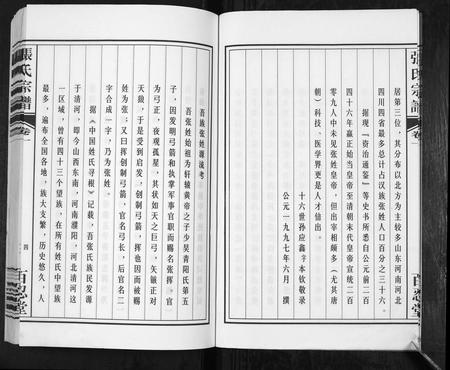 居第三位，其分布以北方为主较多山东河南河北
四川四省最多总计占汉族张姓人口百分之三十六。
据现『资治通鉴』等史书所悉自公元前二百
四十六年嬴正始当皇帝至清朝末代皇帝宣统二百
零九人中未见张姓皇帝，但出宰相颇多（尤其唐
朝）科技、医学界更是人才仙出。
十六世孙应鑫卞本钦敬录
公元一九九七年六月 撰
張氏宗譜
卷一
百忍堂
吾族张姓源流考
吾张姓始祖为轩辕黄帝之子少昊青阳氏第五
子，因发明弓箭和执掌军事官职而赐名张挥。官
为弓正，夜观孤星，其状如天之巨弓，矢镞正对
天狼，于是受到启发，创制弓箭，挥也因而被赐
姓为张；又曰挥创制弓箭，官名弓长，后官名二
字合成一字，乃为张姓。
据《中国姓氏寻根》记载，吾张氏族民发源
于清河，即今山西东南，河南濮阳，河北清河这
一区域，曾有四十三个望族，在所有姓氏中望族
最多，遍布全国各地。族大支繁，历史悠久，人
張氏宗譜
卷一
四
百忍堂